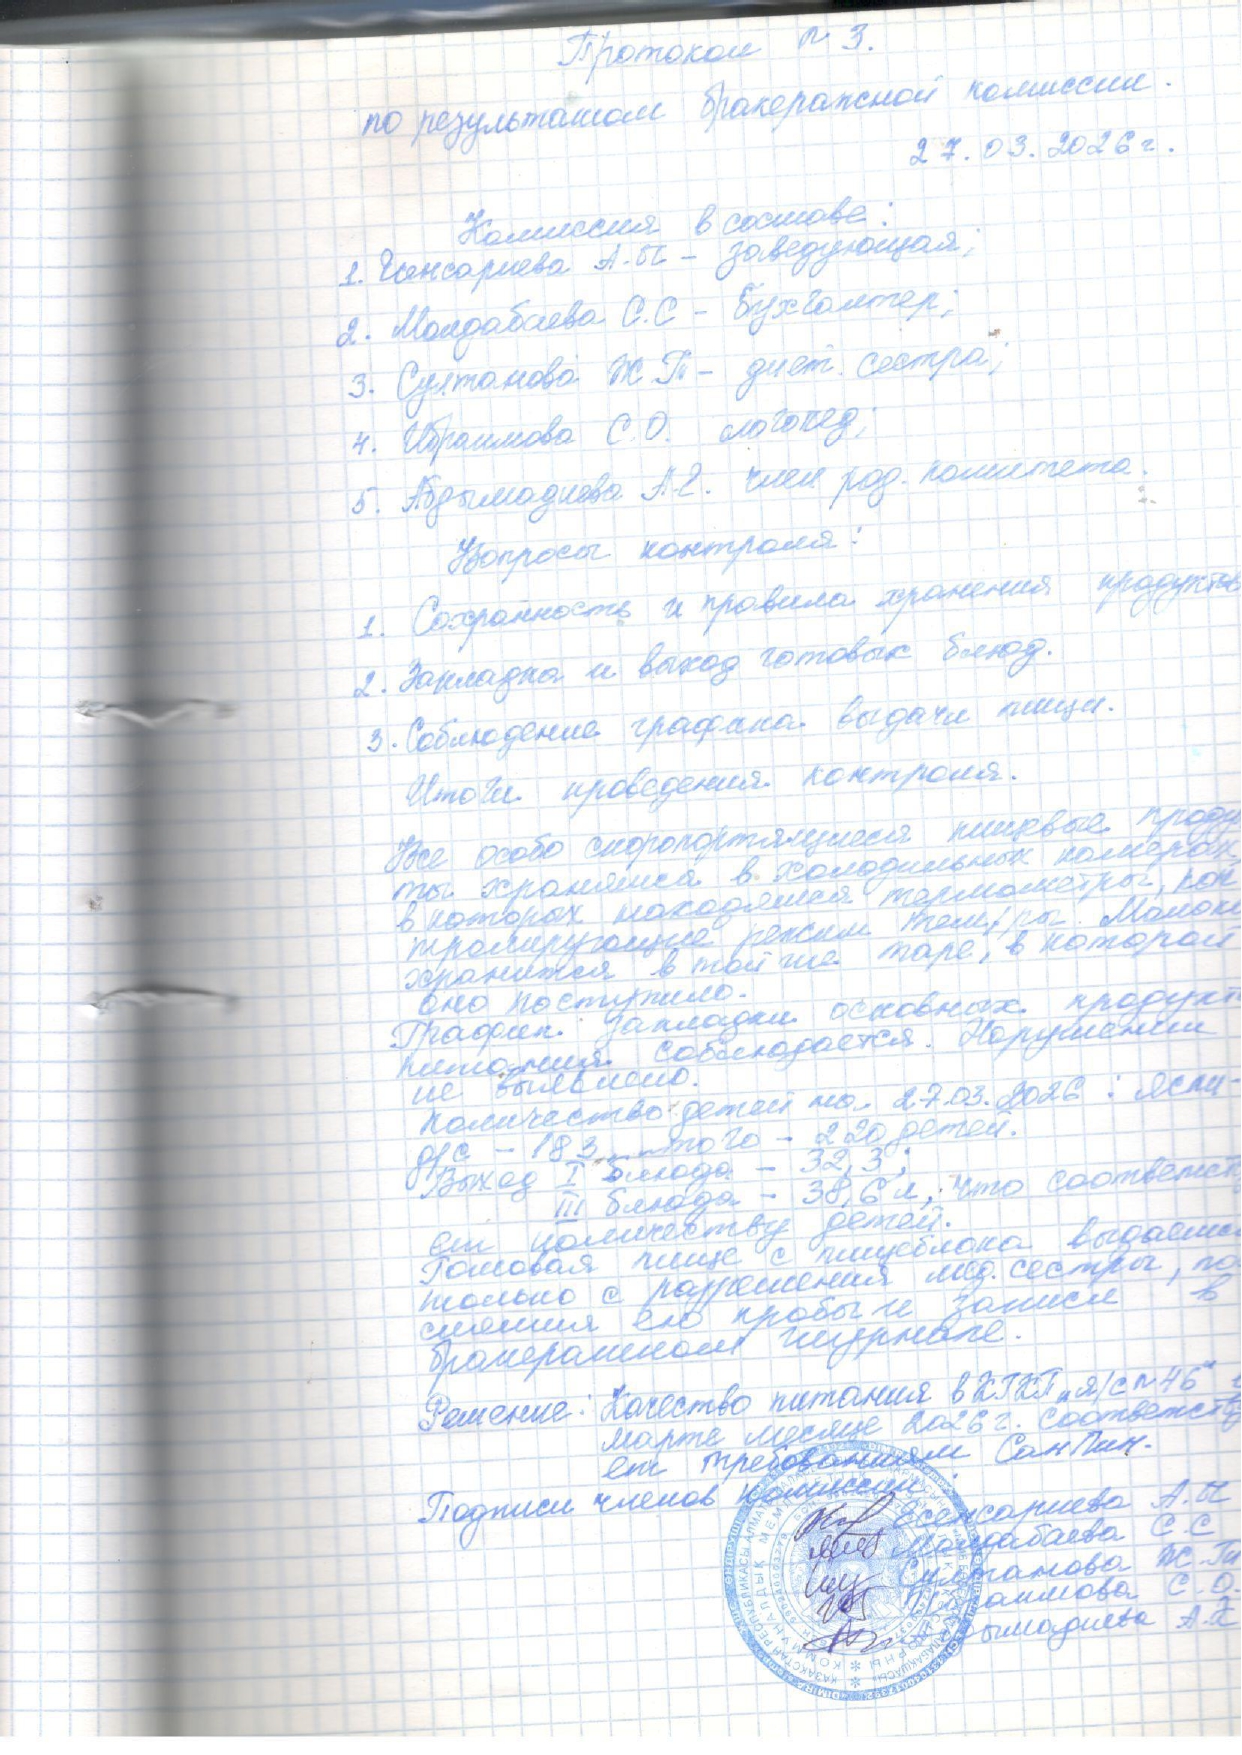 Протокол № 3.
по результатам бракеражной комиссии.
27.03.2026г.
Комиссия в составе:
1. Генсариева А.Ы – заведующая;
2. Молдабаева С.С – Бухгалтер;
3. Султанова Ж.Т – диет. сестра;
4. Ибраимова С.О. логопед;
5. Абдымадиева А. член род. комитета.
Вопросы контроля:
1. Сохранность и правила хранения продуктов
2. Закладка и выход готовых блюд.
3. Соблюдение графика выдачи пищи.
Итоги проведения контроля.
Все особо скоропортящиеся пищевые проду
ты хранятся в холодильных камерах
в которых находятся термометры, кон
тролирующие режим тем/ры. Молоко
хранится в той же таре, в которой
оно поступило.
График закладки основных продукт
питания соблюдается. Нарушении
не выявлено.
Количество детей на 27.03.2026: ясли-
д/с – 183 итого – 220 детей.
Выход I блюда – 32,3;
III блюда – 38,6 л, что соответств
ет количеству детей.
Готовая пище с пищеблока выдается
только с разрешения мед. сестры, по
снятия ею пробы и записи в
бракеражном журнале.
Решение: Качество питания в КГКП "я/с №46"
марте месяце 2026г. соответству
ет требованиям СанПин.
Подписи членов комиссии:
Генсариева А.Ы
Молдабаева С.С
Султанова Ж.Т
Ибраимова С.О.
Абдымадиева А.